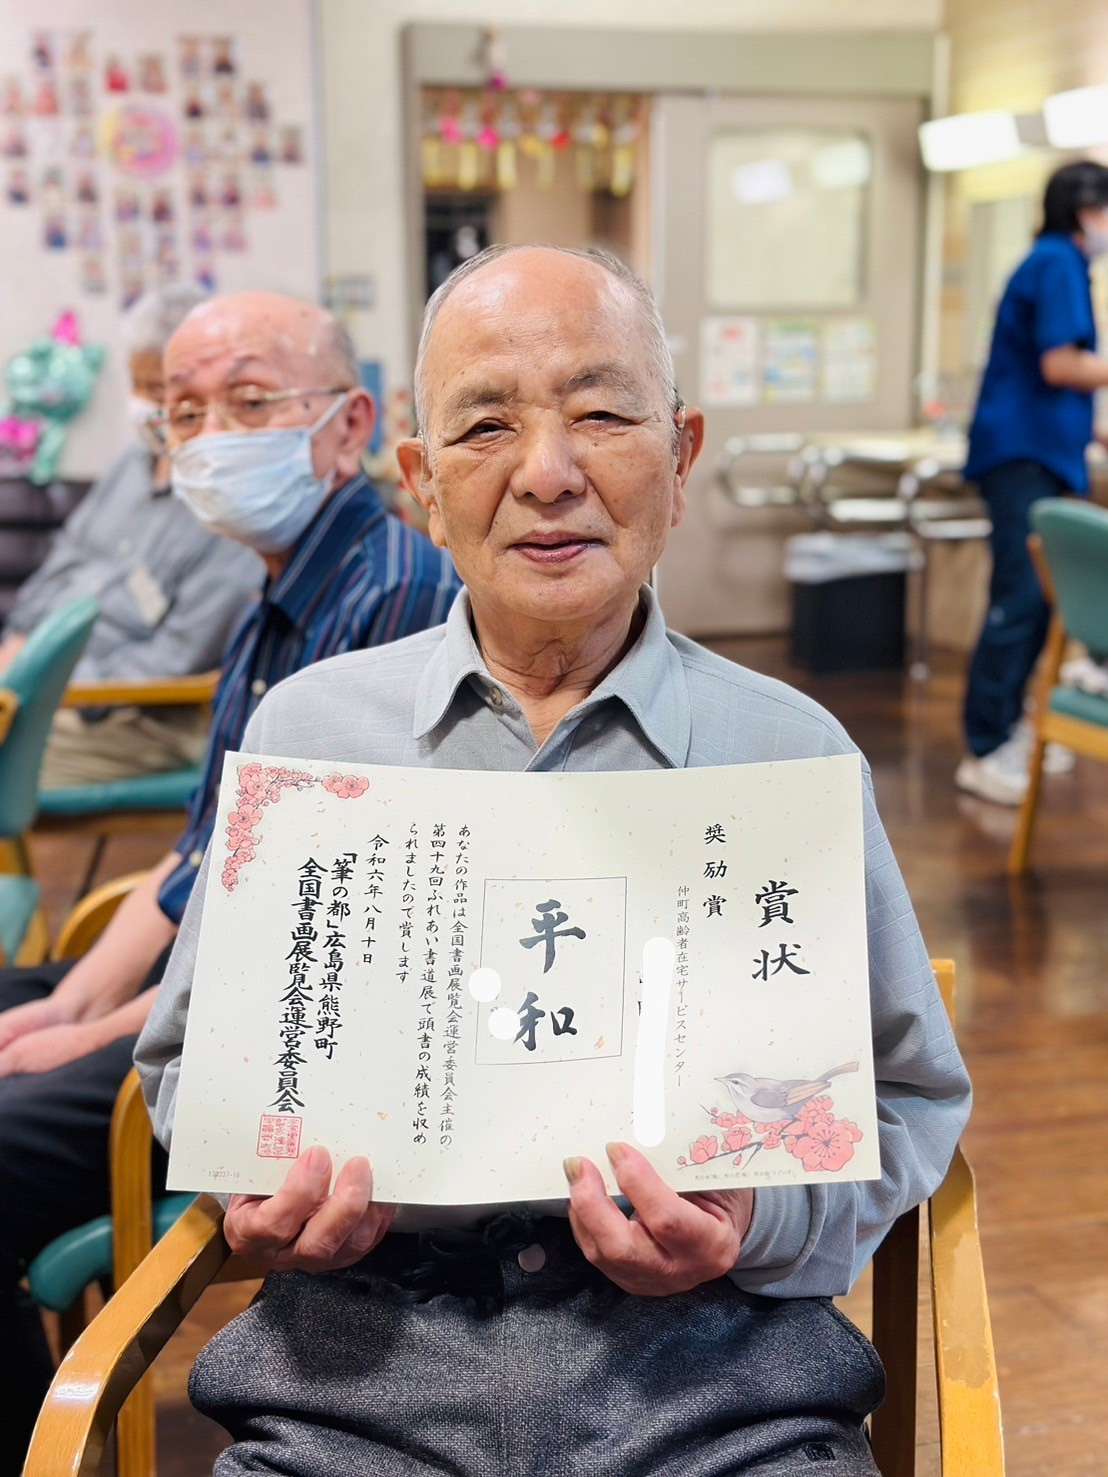 賞状
奨励賞
仲町高齢者在宅サービスセンター
平和
あなたの作品は全国書画展覧会運営委員会主催の
第四十九回ふれあい書道展で頭書の成績を収め
られましたので賞します
令和六年八月十日
「筆の都」広島県熊野町
全国書画展覧会運営委員会